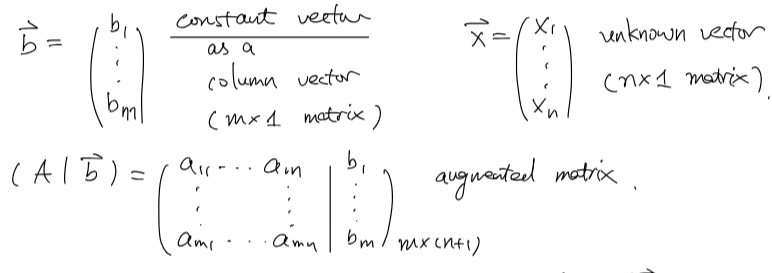 b⃗ = (b₁ ⋮ bₘ) constant vector as a column vector (m×1 matrix)
x⃗ = (x₁ ⋮ xₙ) unknown vector (n×1 matrix).
(A | b⃗) = (a₁₁ ⋯ a₁ₙ | b₁ ⋮ ⋮ ⋮ aₘ₁ ⋯ aₘₙ | bₘ) m×(n+1) augmented matrix.